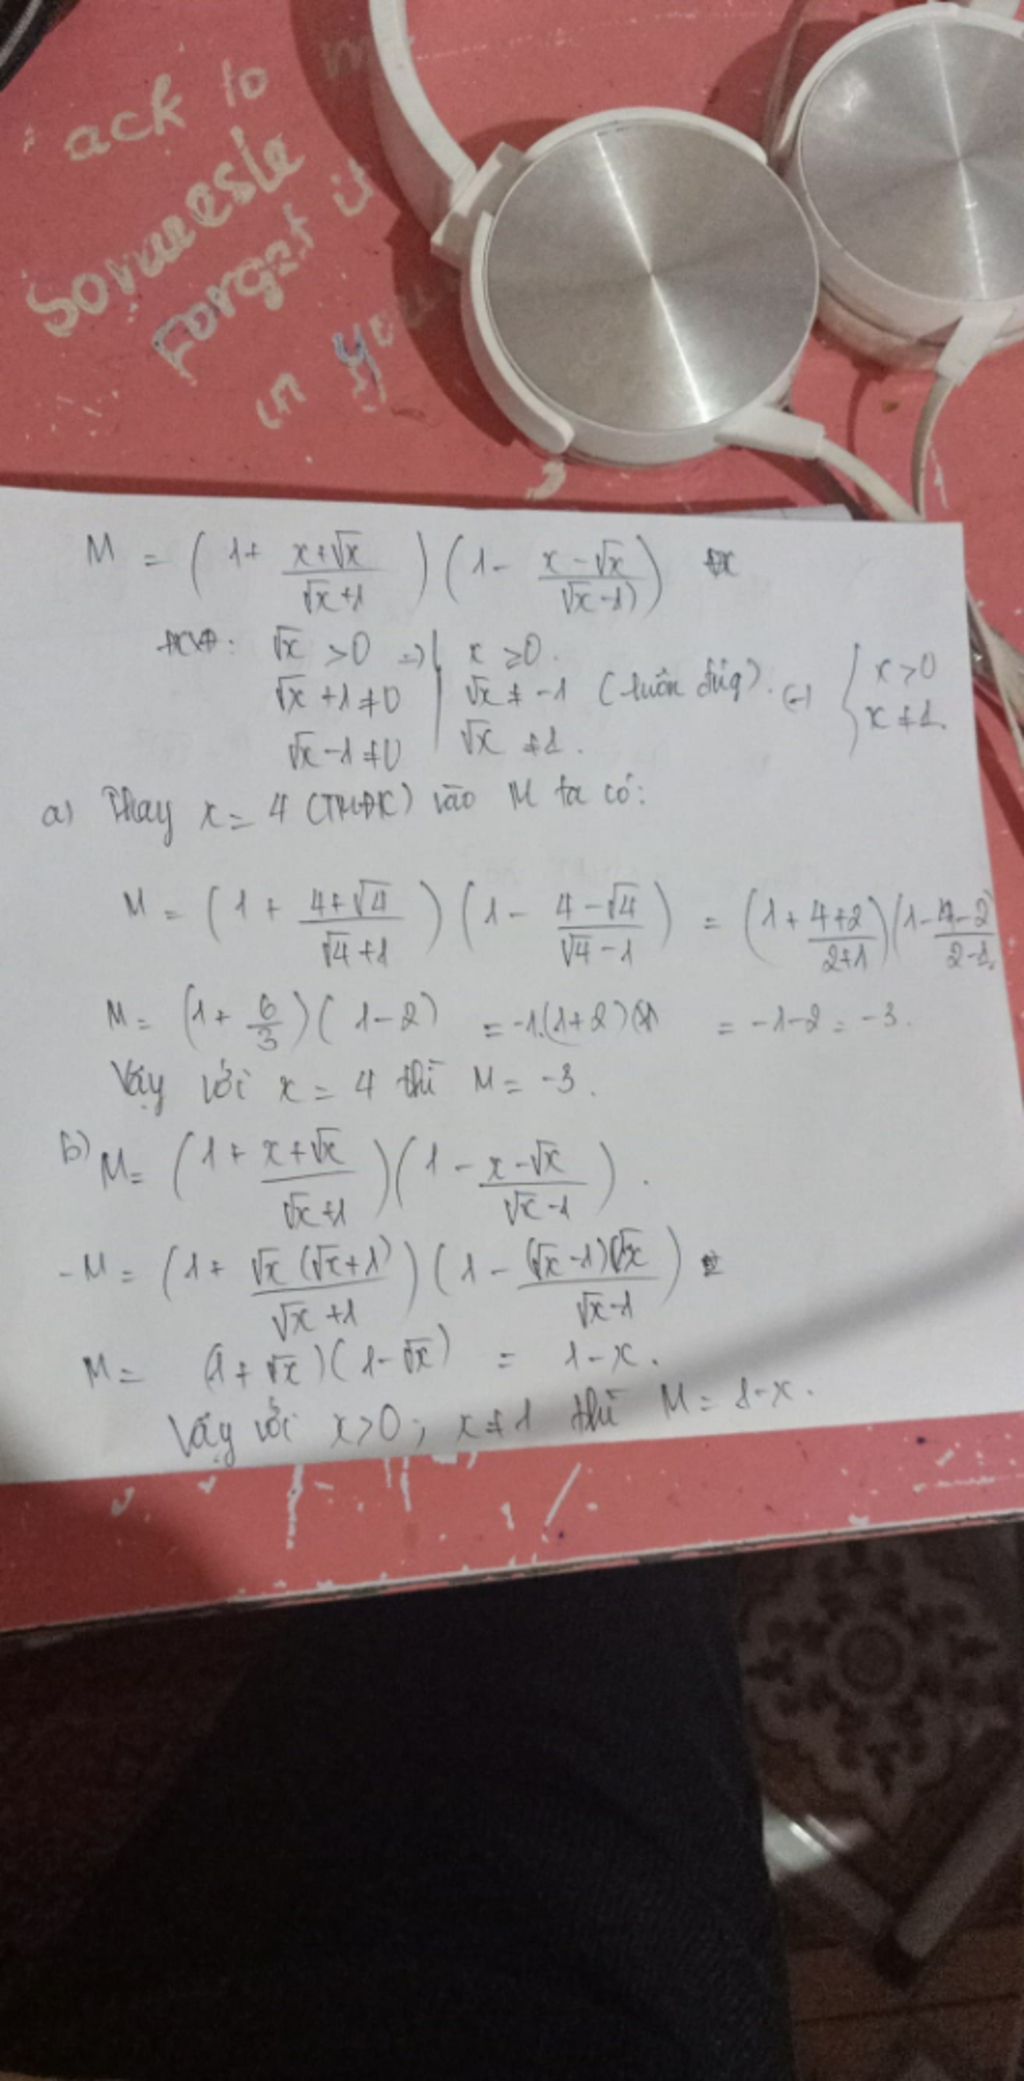 ack to me
Someesle
Forget it
in you
M = (1+ x+√x/√x+1)(1- x-√x/√x-1)
ĐKXĐ: √x >0 => x ≥0.
√x +1 ≠0 √x ≠ -1 (luôn đúng). (=) x >0
√x-1 ≠0 √x ≠1. x ≠1.
a) Thay x = 4 (TMĐK) vào M ta có:
M = (1 + 4+√4/√4+1)(1- 4-√4/√4-1) = (1+ 4+2/2+1)(1- 4-2/2-1)
M = (1+ 6/3)(1-2) = -1.(1+2) = -1-2 = -3.
Vậy với x = 4 thì M = -3.
b) M= (1+ x+√x/√x+1)(1- x-√x/√x-1).
-M = (1+ √x(√x+1)/√x+1)(1- (√x-1)√x/√x-1)
M = (1+√x)(1-√x) = 1-x.
Vậy với x>0; x≠1 thì M= 1-x.